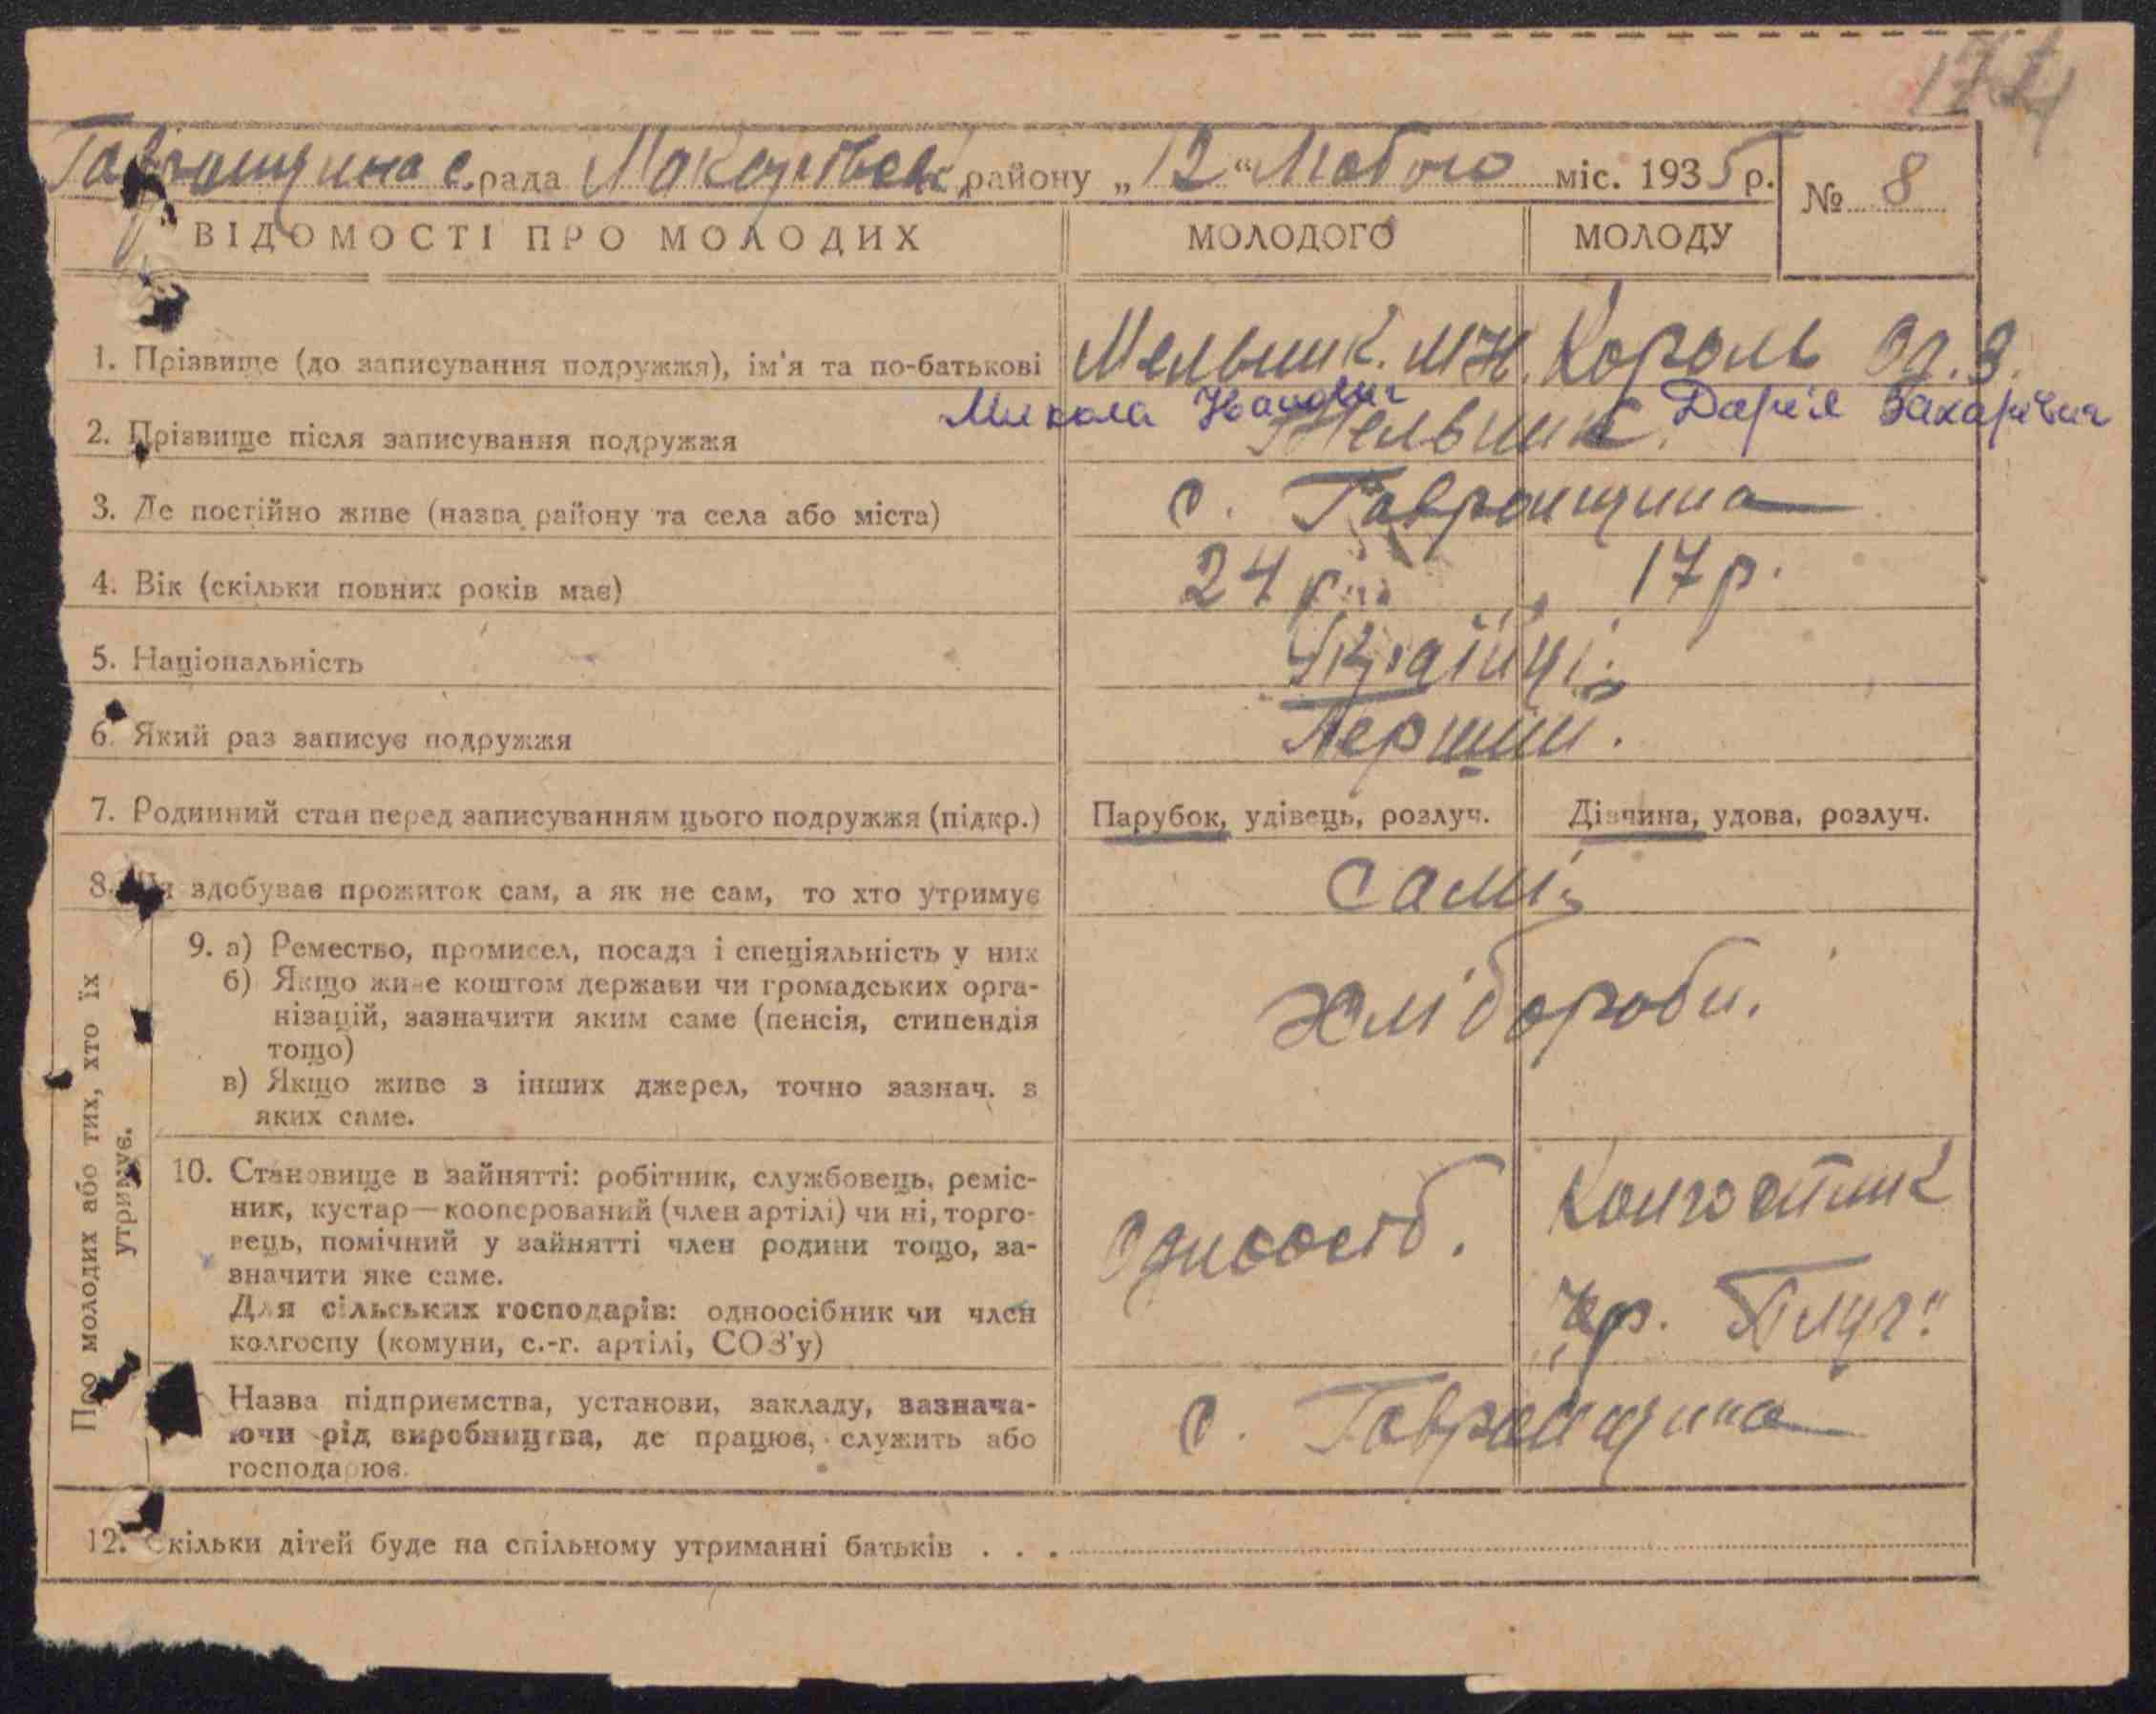 174
Гавронщина с. рада Макарівськ району „12“ Лютого міс. 1935 р. № 8
ВІДОМОСТІ ПРО МОЛОДИХ МОЛОДОГО МОЛОДУ
1. Прізвище (до записування подружжя), ім'я та по-батькові Мельник. М Н. Король Од. З.
Микола Іванович Дарія Захарівна
2. Прізвище після записування подружжя Мельник.
3. Де постійно живе (назва району та села або міста) с. Гавронщина
4. Вік (скільки повних років має) 24 р. 17 р.
5. Національність Українці.
6. Який раз записує подружжя Перший.
7. Родинний стан перед записуванням цього подружжя (підкр.) Парубок, удівець, розлуч. Дівчина, удова, розлуч.
8. Чи здобуває прожиток сам, а як не сам, то хто утримує Самі
Про молодих або тих, хто їх утримує.
9. а) Ремество, промисел, посада і спеціяльність у них
б) Якщо живе коштом держави чи громадських орга-
нізацій, зазначити яким саме (пенсія, стипендія
тощо)
в) Якщо живе з інших джерел, точно зазнач. з
яких саме.
хлібороби.
10. Становище в зайнятті: робітник, службовець, реміс-
ник, кустар—кооперований (член артілі) чи ні, торго-
вець, помічний у зайнятті член родини тощо, за-
значити яке саме.
Для сільських господарів: одноосібник чи член
колгоспу (комуни, с.-г. артілі, СОЗ'у)
Одноосіб.
Колгоспник
„Чр. Плуг“
Назва підприємства, установи, закладу, зазнача-
ючи рід виробництва, де працює, служить або
господарює.
с. Гавронщина
12. Скільки дітей буде на спільному утриманні батьків . . .